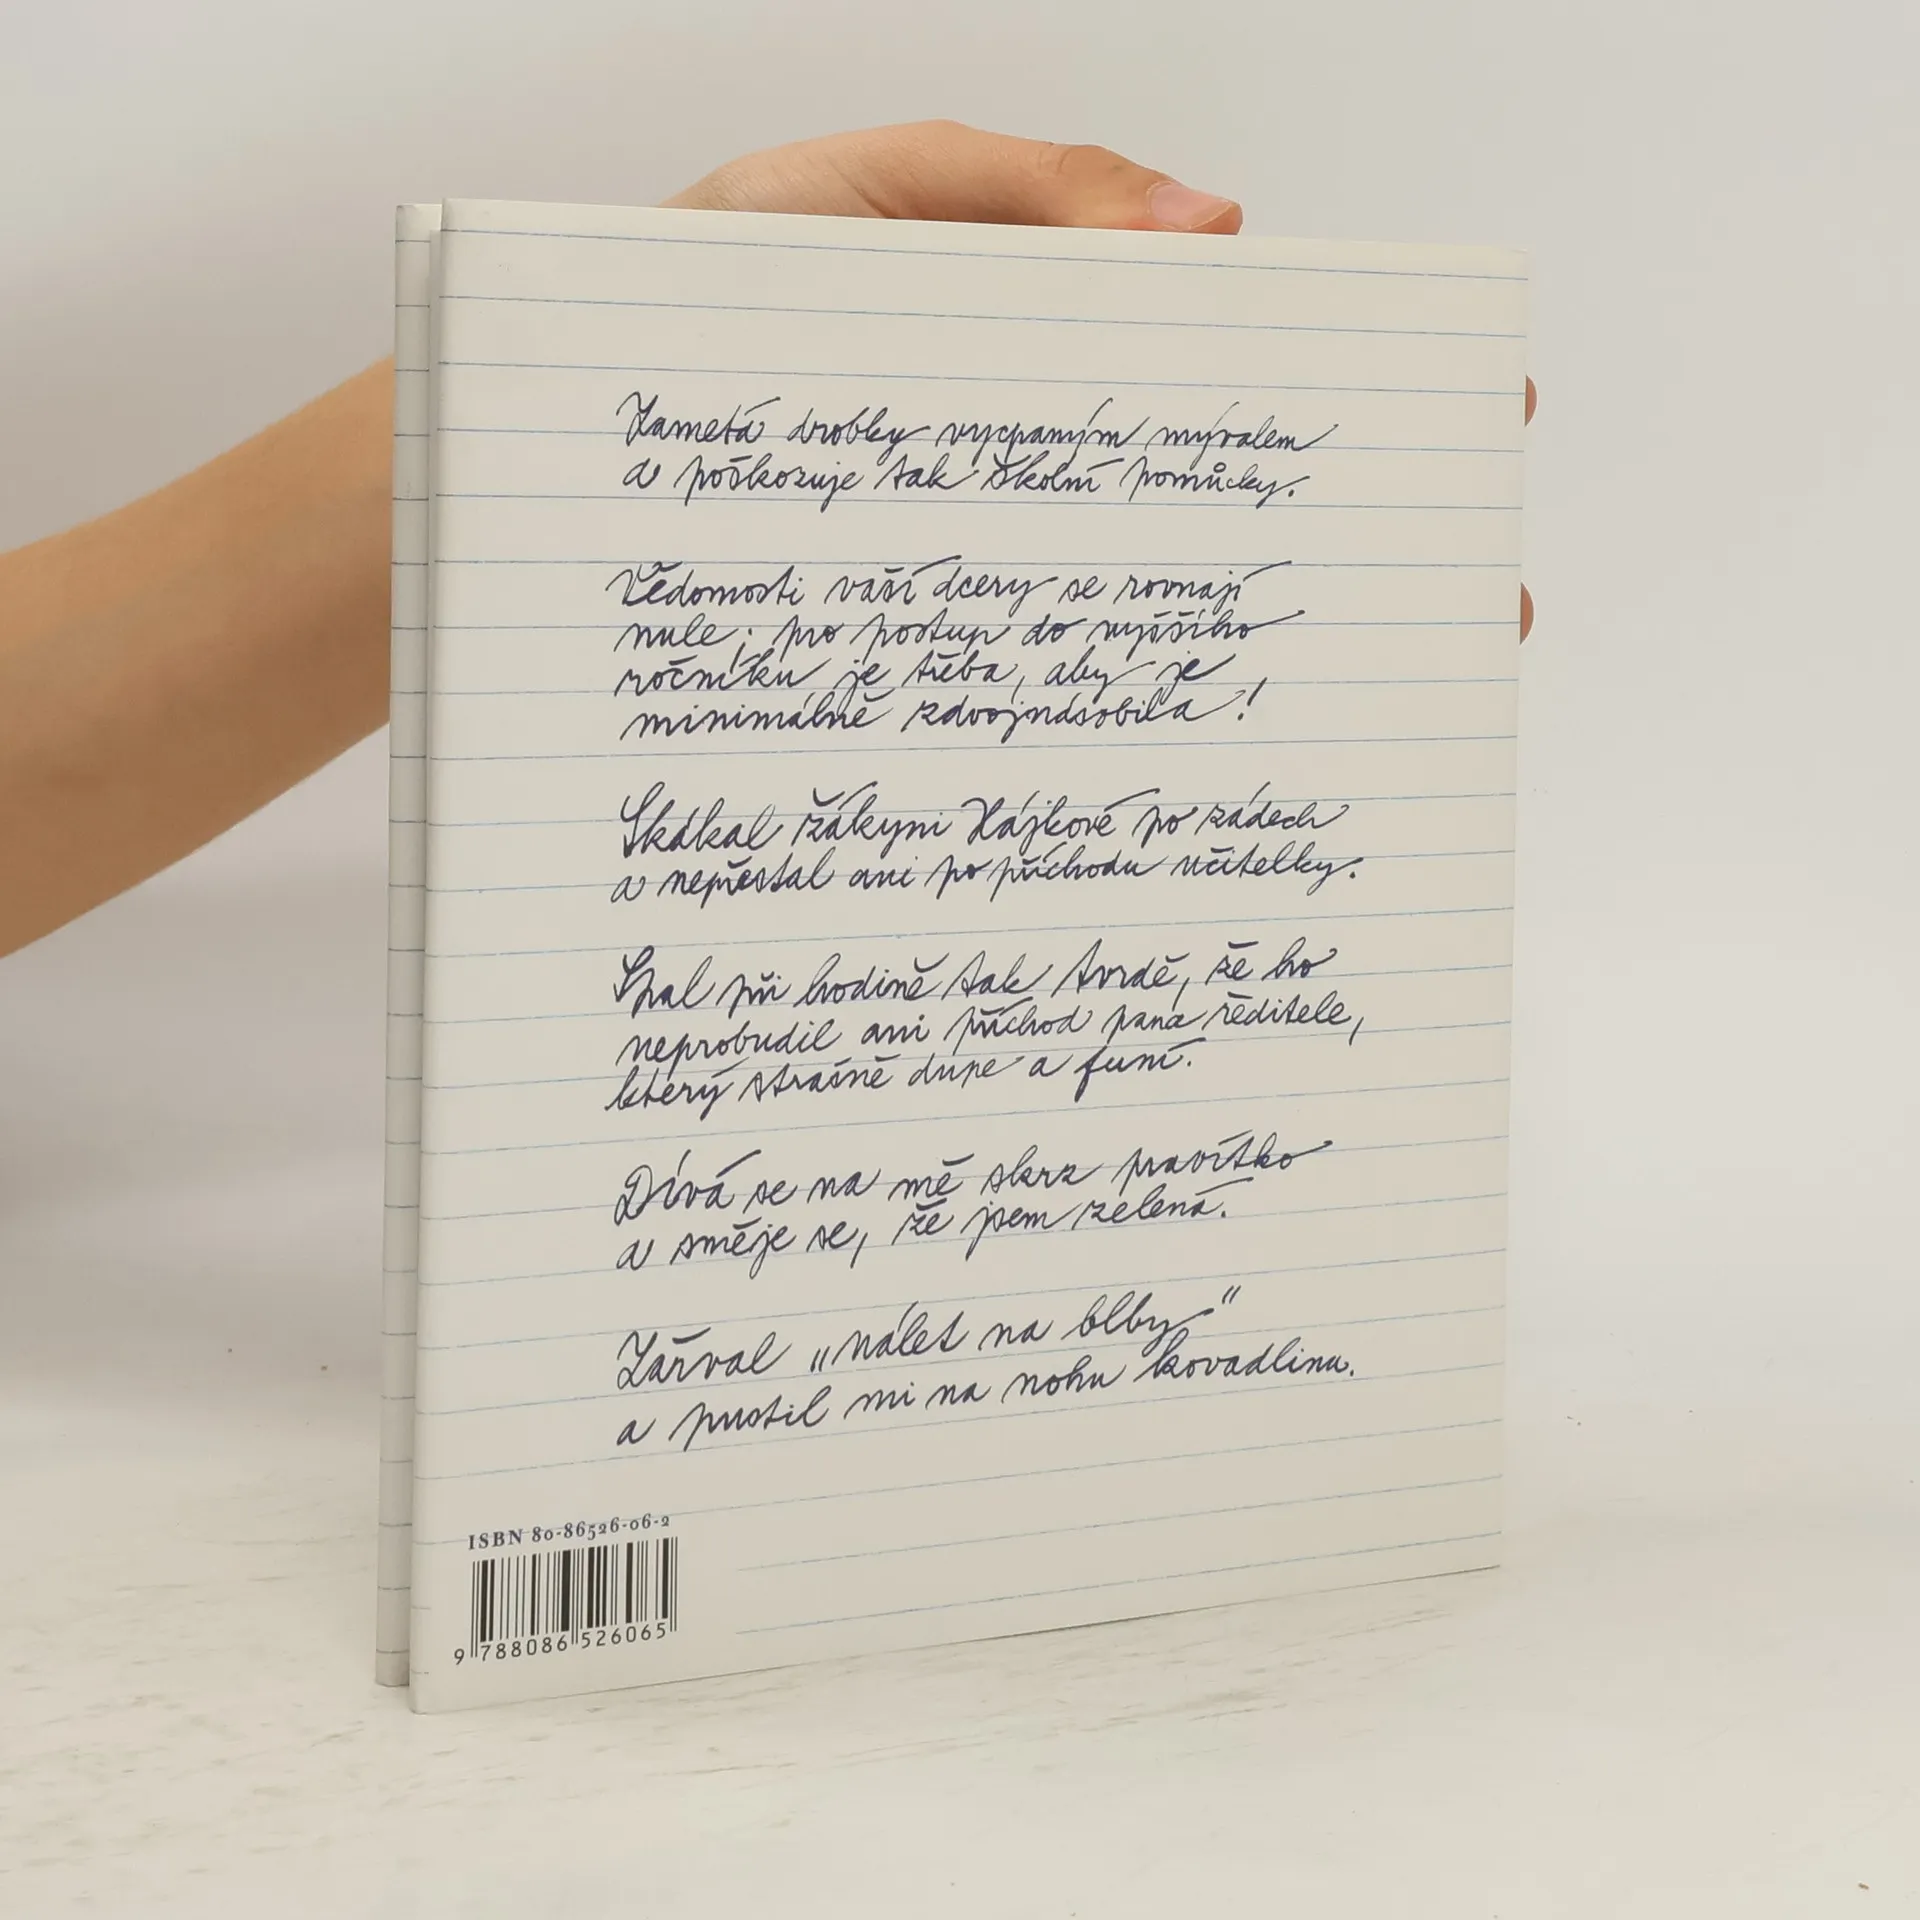 Zametá drobky vycpaným mývalem
a poškozuje tak školní pomůcky.
Vědomosti vaší dcery se rovnají
nule; pro postup do vyššího
ročníku je třeba, aby je
minimálně zdvojnásobila!
Skákal žákyni Hájkové po zádech
a nepřestal ani po příchodu učitelky.
Spal při hodině tak tvrdě, že ho
neprobudil ani příchod pana ředitele,
který strašně dupe a funí.
Dívá se na mě skrz pravítko
a směje se, že jsem zelená.
Zařval „nálet na blby“
a pustil mi na nohu kovadlinu.
ISBN 80-86526-06-2
9 788086 526065